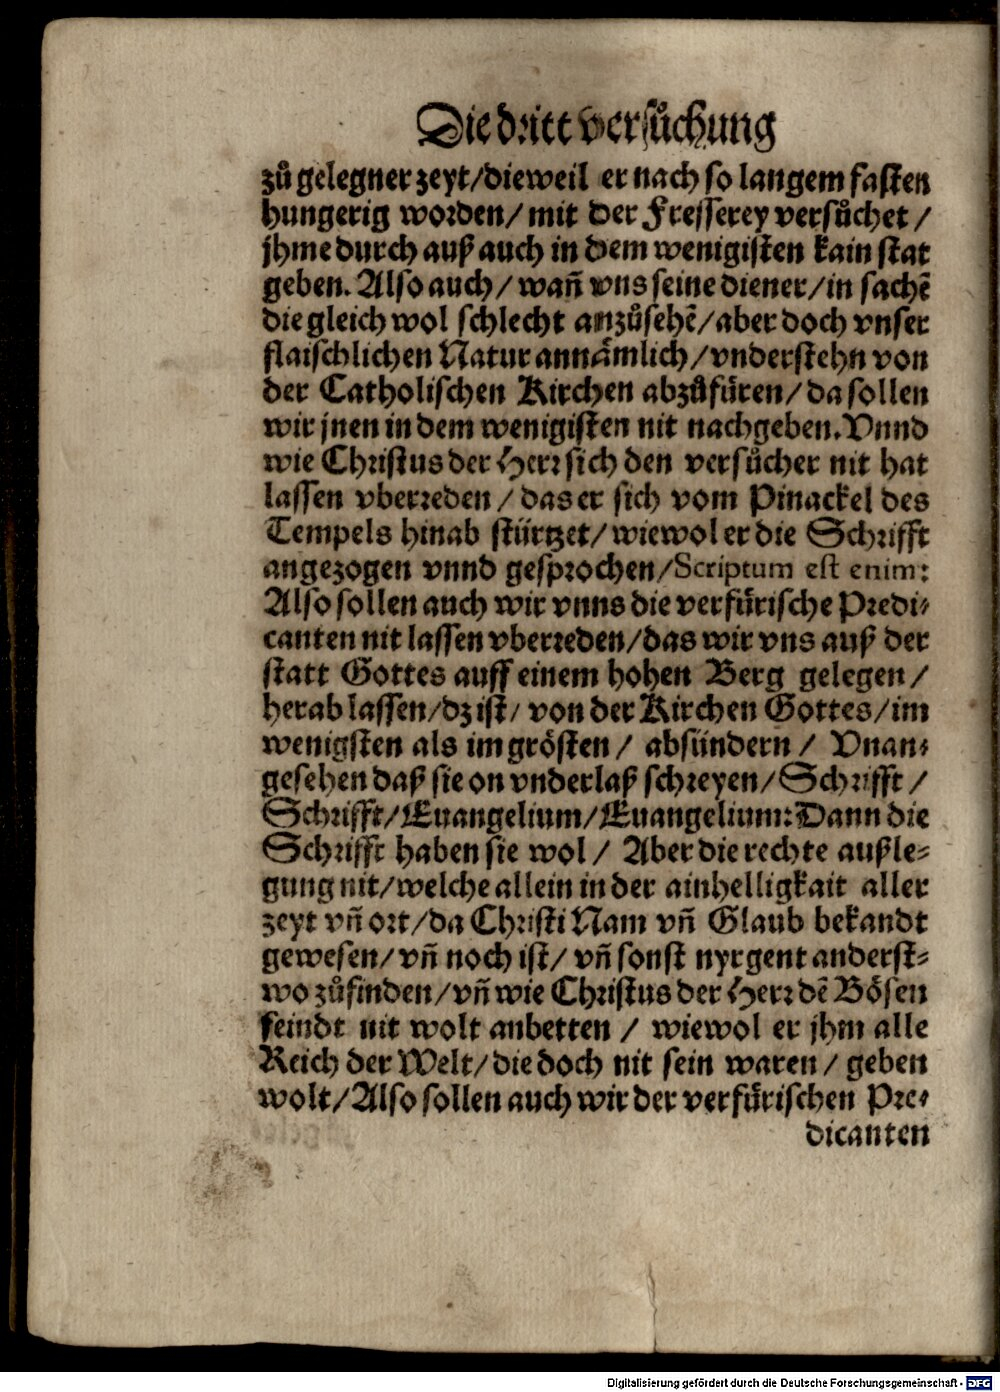 Die dritt versůchung
zů gelegner zeyt/dieweil er nach so langem fasten
hungerig worden/ mit der Fresserey versůchet /
jhme durch auß auch in dem wenigisten kain stat
geben. Also auch/ wañ vns seine diener/in sachẽ
die gleich wol schlecht anzůsehẽ/aber doch vnser
flaischlichen Natur annämlich/ vnderstehn von
der Catholischen Kirchen abzůfüren/ da sollen
wir jnen in dem wenigisten nit nachgeben. Vnnd
wie Christus der Herr sich den versůcher nit hat
lassen vberreden / das er sich vom Pinackel des
Tempels hinab stürtzet/ wiewol er die Schrifft
angezogen vnnd gesprochen/Scriptum est enim:
Also sollen auch wir vnns die verfürische Predi-
canten nit lassen vberreden/das wir vns auß der
statt Gottes auff einem hohen Berg gelegen /
herab lassen/dz ist/ von der Kirchen Gottes/im
wenigsten als im grösten / absündern / Vnan-
gesehen daß sie on vnderlaß schreyen/Schrifft /
Schrifft/Euangelium/Euangelium: Dann die
Schrifft haben sie wol / Aber die rechte außle-
gung nit/welche allein in der ainhelligkait aller
zeyt vñ ort/da Christi Nam vñ Glaub bekandt
gewesen/ vñ noch ist/ vñ sonst nyrgent anderst-
wo zůfinden/vñ wie Christus der Herr dẽ Bösen
feindt nit wolt anbetten / wiewol er jhm alle
Reich der Welt/die doch nit sein waren/ geben
wolt/Also sollen auch wir der verfürischen Pre-
dicanten
Digitalisierung gefördert durch die Deutsche Forschungsgemeinschaft - DFG